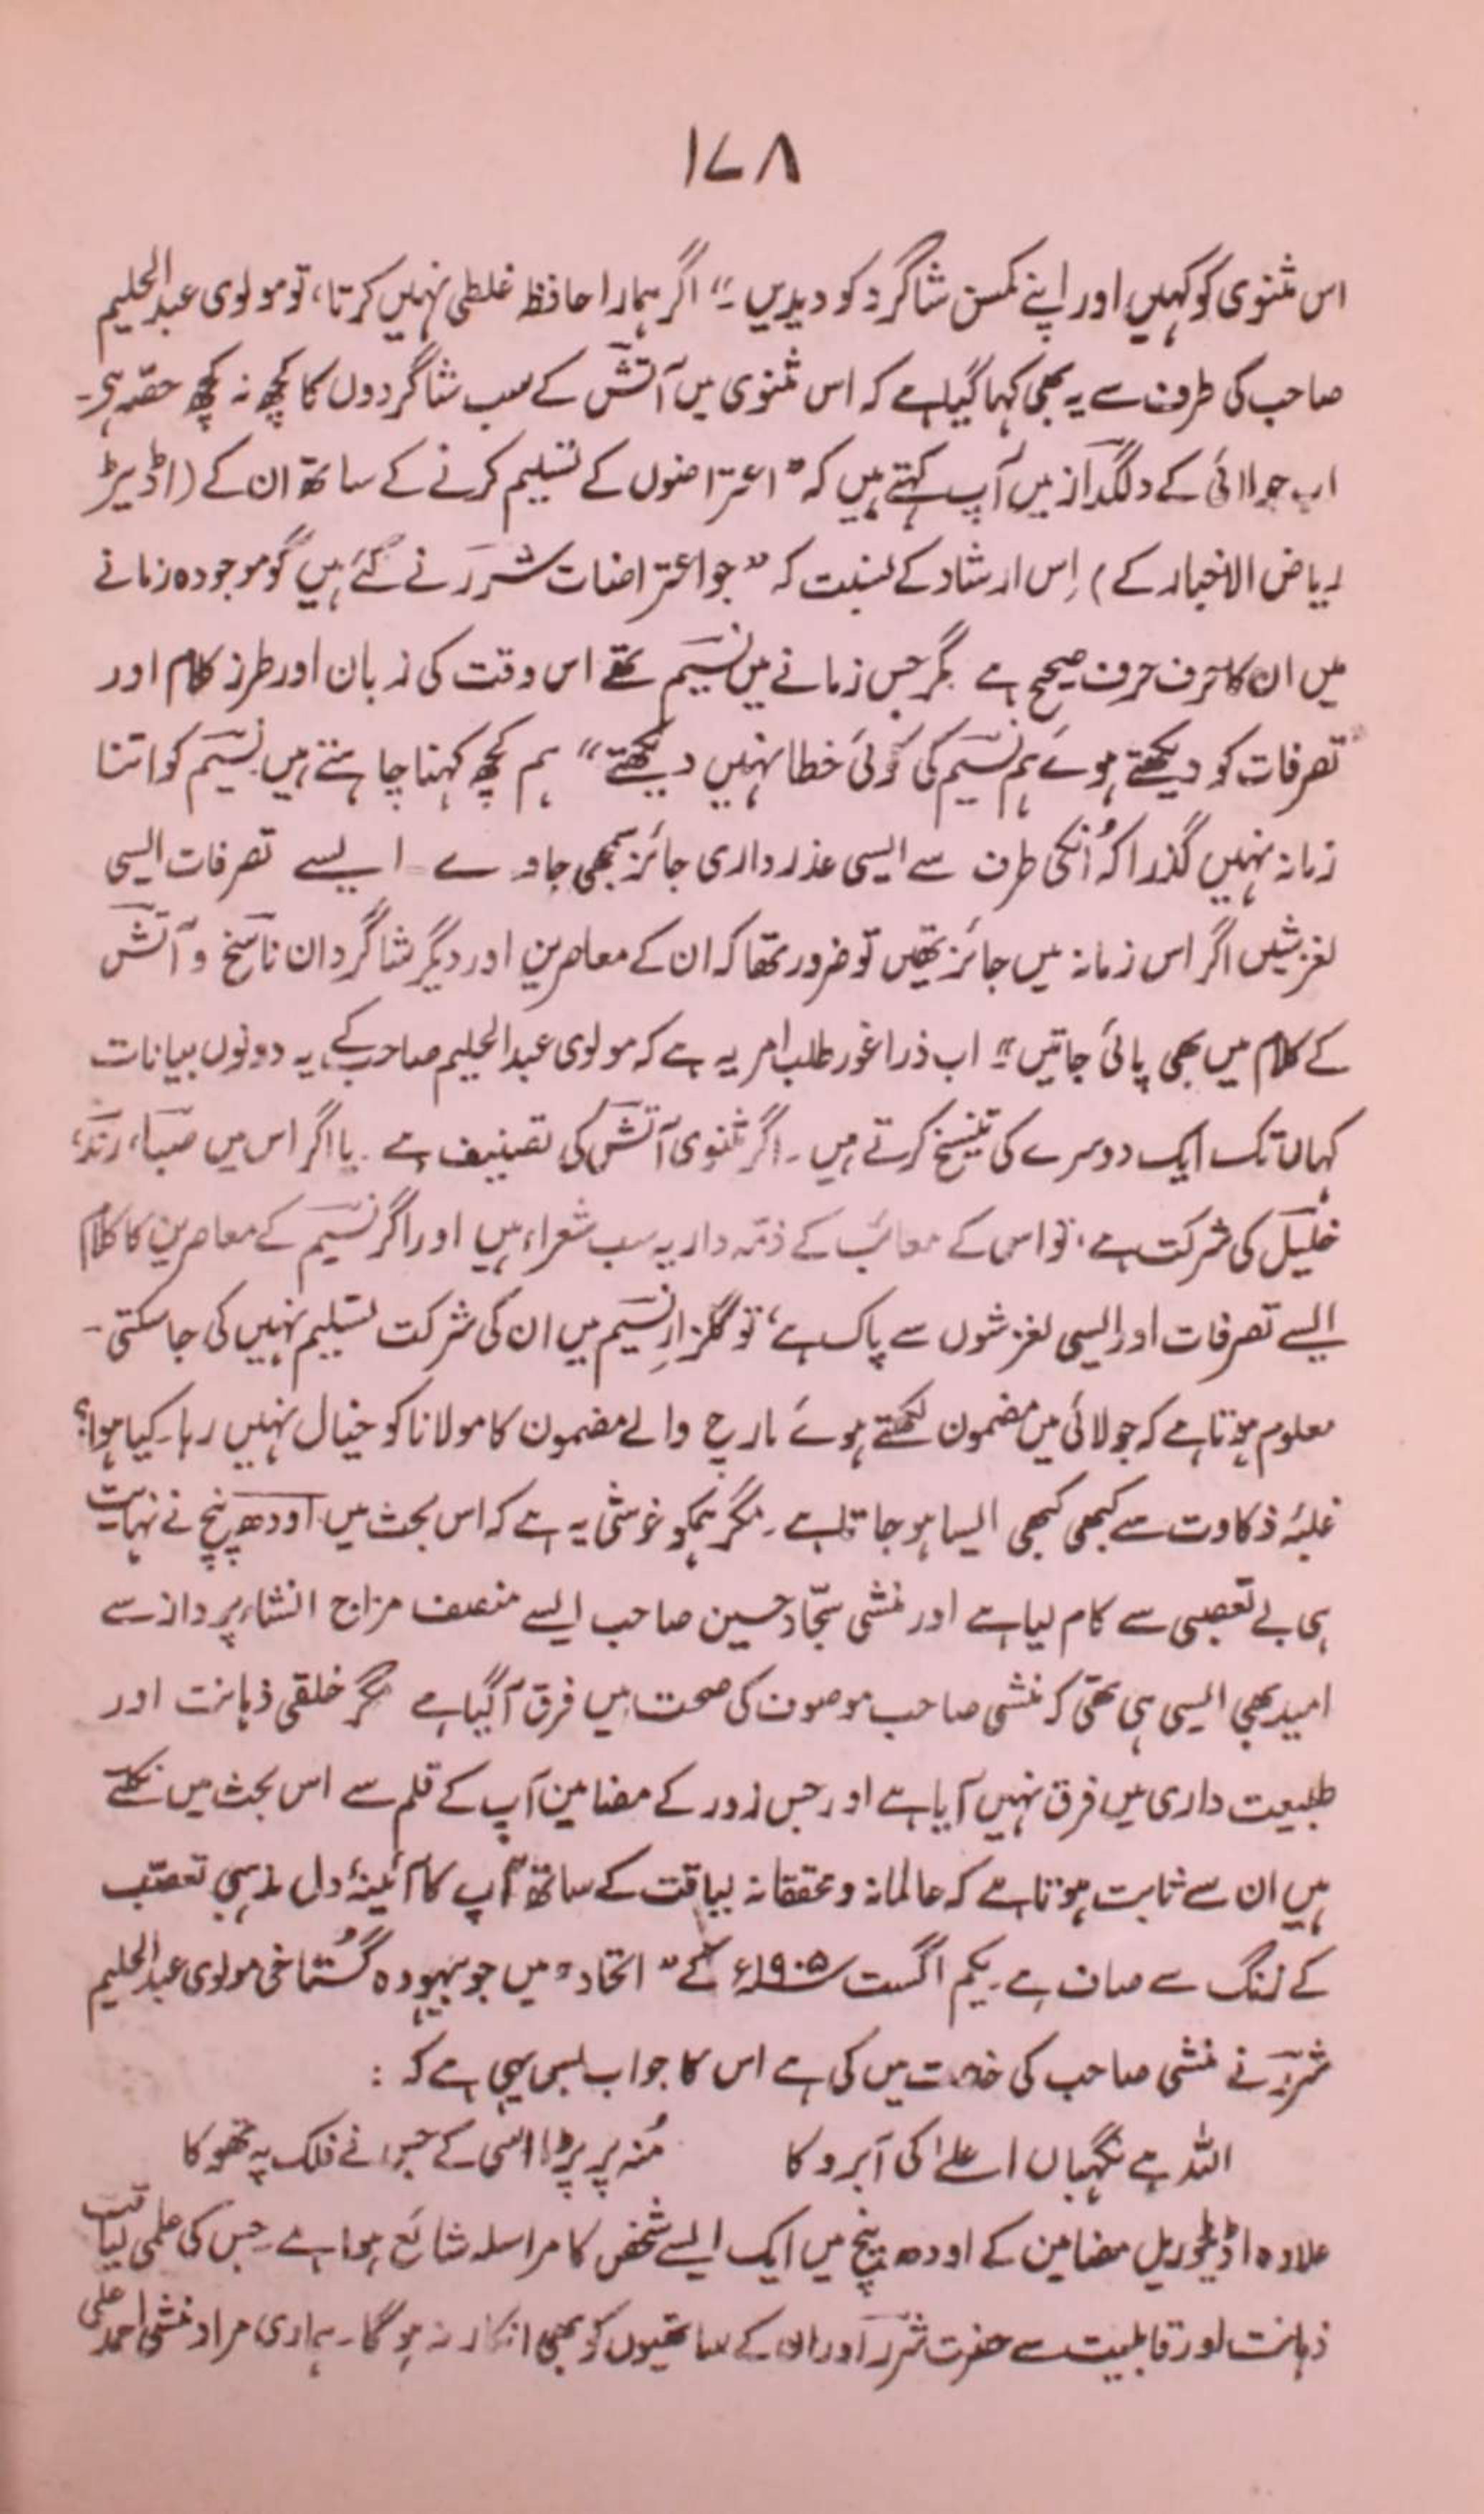 ۱۷۸
اس مثنوی کو کہیں اور اپنے کمسن شاگرد کو دیدیں ۔“ اگر ہمارا حافظہ غلطی نہیں کرتا، تو مولوی عبدالحلیم
صاحب کی طرف سے یہ بھی کہا گیا ہے کہ اس مثنوی میں آتشؔ کے سب شاگردوں کا کچھ نہ کچھ حصّہ ہی۔
اب جولائی کے دلگداز میں آپ کہتے ہیں کہ ”اعتراضوں کے تسلیم کرنے کے ساتھ ان کے (اڈیٹر
ریاض الاخبار کے) اِس ارشاد کے نسبت کہ ”جو اعتراضات شررؔ نے کئے ہیں گو موجودہ زمانے
میں ان کا حرف حرف صحیح ہے مگر جس زمانے میں نسیمؔ تھے اس وقت کی زبان اور طرز کلام اور
تصرفات کو دیکھتے ہوئے ہم نسیمؔ کی کوئی خطا نہیں دیکھتے“ ہم کچھ کہنا چاہتے ہیں نسیمؔ کو اتنا
زمانہ نہیں گذرا کہ اُنکی طرف سے ایسی عذر داری جائز سمجھی جاوے۔ ایسے تصرفات ایسی
لغزشیں اگر اس زمانہ میں جائز تھیں تو ضرور تھا کہ ان کے معاصرین اور دیگر شاگردان ناسخؔ و آتشؔ
کے کلام میں بھی پائی جاتیں“ اب ذرا غور طلب امر یہ ہے کہ مولوی عبدالحلیم صاحب کے یہ دونوں بیانات
کہاں تک ایک دوسرے کی تنسیخ کرتے ہیں ۔ اگر مثنوی آتشؔ کی تصنیف ہے ۔ یا اگر اس میں صباؔ، رندؔ،
خلیلؔ کی شرکت ہے، تو اس کے معائب کے ذمّہ دار یہ سب شعراء ہیں اور اگر نسیمؔ کے معاصرین کا کلام
ایسے تصرفات اور ایسی لغزشوں سے پاک ہے، تو گلزارِ نسیمؔ میں ان کی شرکت تسلیم نہیں کی جا سکتی۔
معلوم ہوتا ہے کہ جولائی میں مضمون لکھتے ہوئے مارچ والے مضمون کا مولانا کو خیال نہیں رہا۔ کیا ہوا؟
غلبۂ ذکاوت سے کبھی کبھی ایسا ہو جاتا ہے ۔ مگر ہمکو خوشی یہ ہے کہ اس بحث میں اودھ پنچ نے نہایت
ہی بے تعصبی سے کام لیا ہے اور منشی سجّاد حسین صاحب ایسے منصف مزاج انشاء پرداز سے
امید بھی ایسی ہی تھی کہ منشی صاحب موصوف کی صحت میں فرق آگیا ہے مگر خلقی ذہانت اور
طبیعت داری میں فرق نہیں آیا ہے اور جس زور کے مضامین آپ کے قلم سے اس بحث میں نکلتے
ہیں ان سے ثابت ہوتا ہے کہ عالمانہ و محققانہ لیاقت کے ساتھ آپ کا آئینۂ دل مذہبی تعصّب
کے زنگ سے صاف ہے ۔ یکم اگست ۱۹۰۵ء کے ”اتحاد“ میں جو بیہودہ گُستاخی مولوی عبدالحلیم
شررؔ نے منشی صاحب کی خدمت میں کی ہے اس کا جواب بس یہی ہے کہ :
اللہ ہے نگہباں اعلےٰ کی آبرو کا مُنہ پر پڑا اسی کے جسنے فلک پہ تھوکا
علاوہ اڈیٹوریل مضامین کے اودھ پنچ میں ایک ایسے شخص کا مراسلہ شائع ہوا ہے ۔ جس کی علمی لیاقت
ذہانت اور قابلیت سے حضرت شررؔ اور ان کے ساتھیوں کو بھی انکار نہ ہوگا۔ ہماری مراد منشی احمد علی